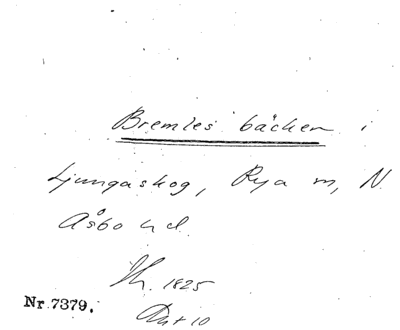 Bremles bäcken i
Ljungaskog, Rya m, N
Åsbo hd.
Sk. 1825
Nr 7379.